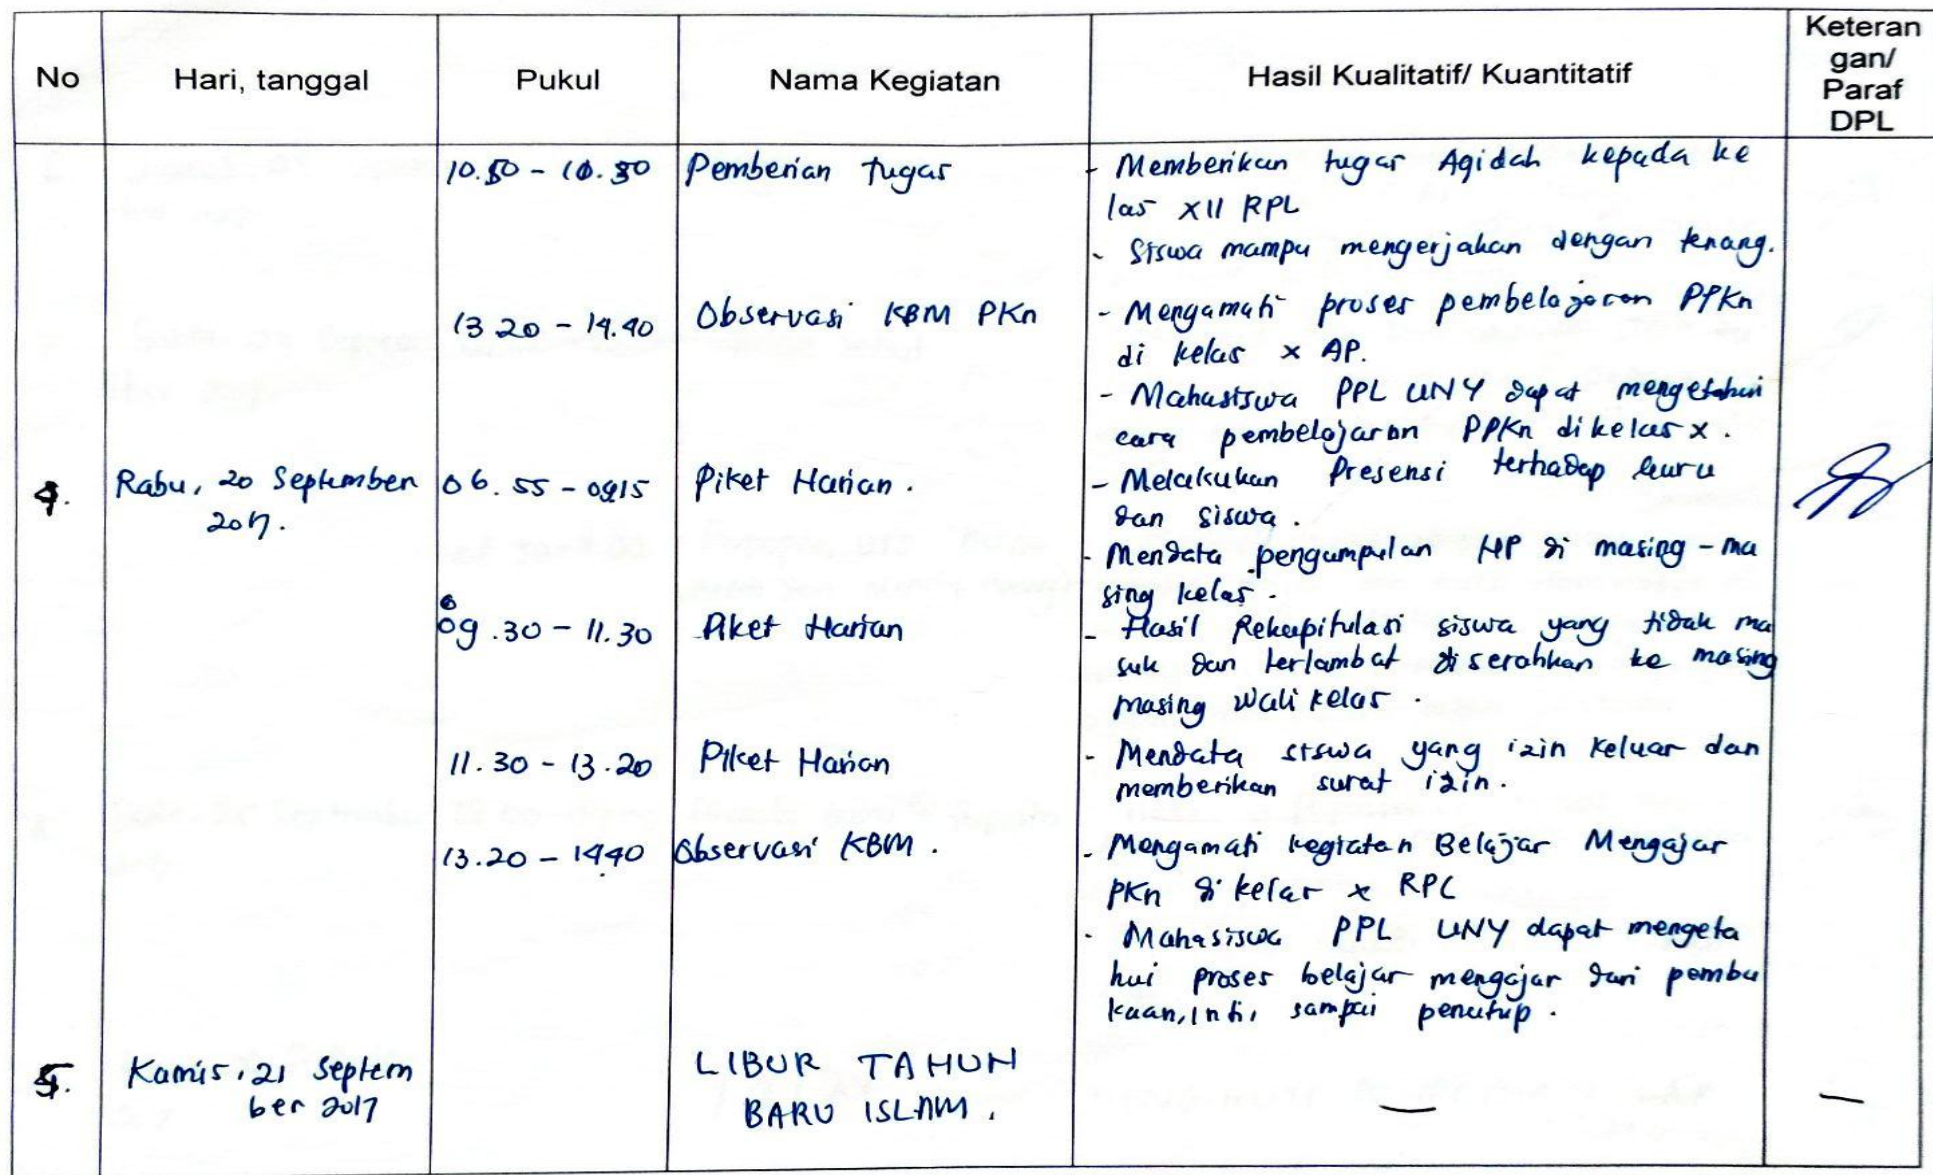 No Hari, tanggal Pukul Nama Kegiatan Hasil Kualitatif/ Kuantitatif Keteran
gan/
Paraf
DPL
10.50 - 10.50 Pemberian tugas - Memberikan tugas Aqidah kepada ke
las XII RPL
- Siswa mampu mengerjakan dengan tenang.
13 20 - 14.40 Observasi KBM PKn - Mengamati proses pembelajaran PPKn
di kelas X AP.
- Mahasiswa PPL UNY dapat mengetahui
cara pembelajaran PPKn dikelas X.
4. Rabu, 20 September 06.55 - 0915 Piket Harian. - Melakukan Presensi terhadap Guru
2017. dan siswa.
- Mendata pengumpulan HP di masing-ma
sing kelas.
09.30 - 11.30 Piket Harian - Hasil Rekapitulasi siswa yang tidak ma
suk dan terlambat diserahkan ke masing
masing Wali kelas.
11.30 - 13.20 Piket Harian - Mendata siswa yang izin keluar dan
memberikan surat izin.
13.20 - 1440 Observasi KBM. - Mengamati kegiatan Belajar Mengajar
PKn di kelas X RPL
- Mahasiswa PPL UNY dapat mengeta
hui proses belajar mengajar dari pembu
kaan, inti, sampai penutup.
5. Kamis, 21 Septem LIBUR TAHUN
ber 2017 BARU ISLAM. — —